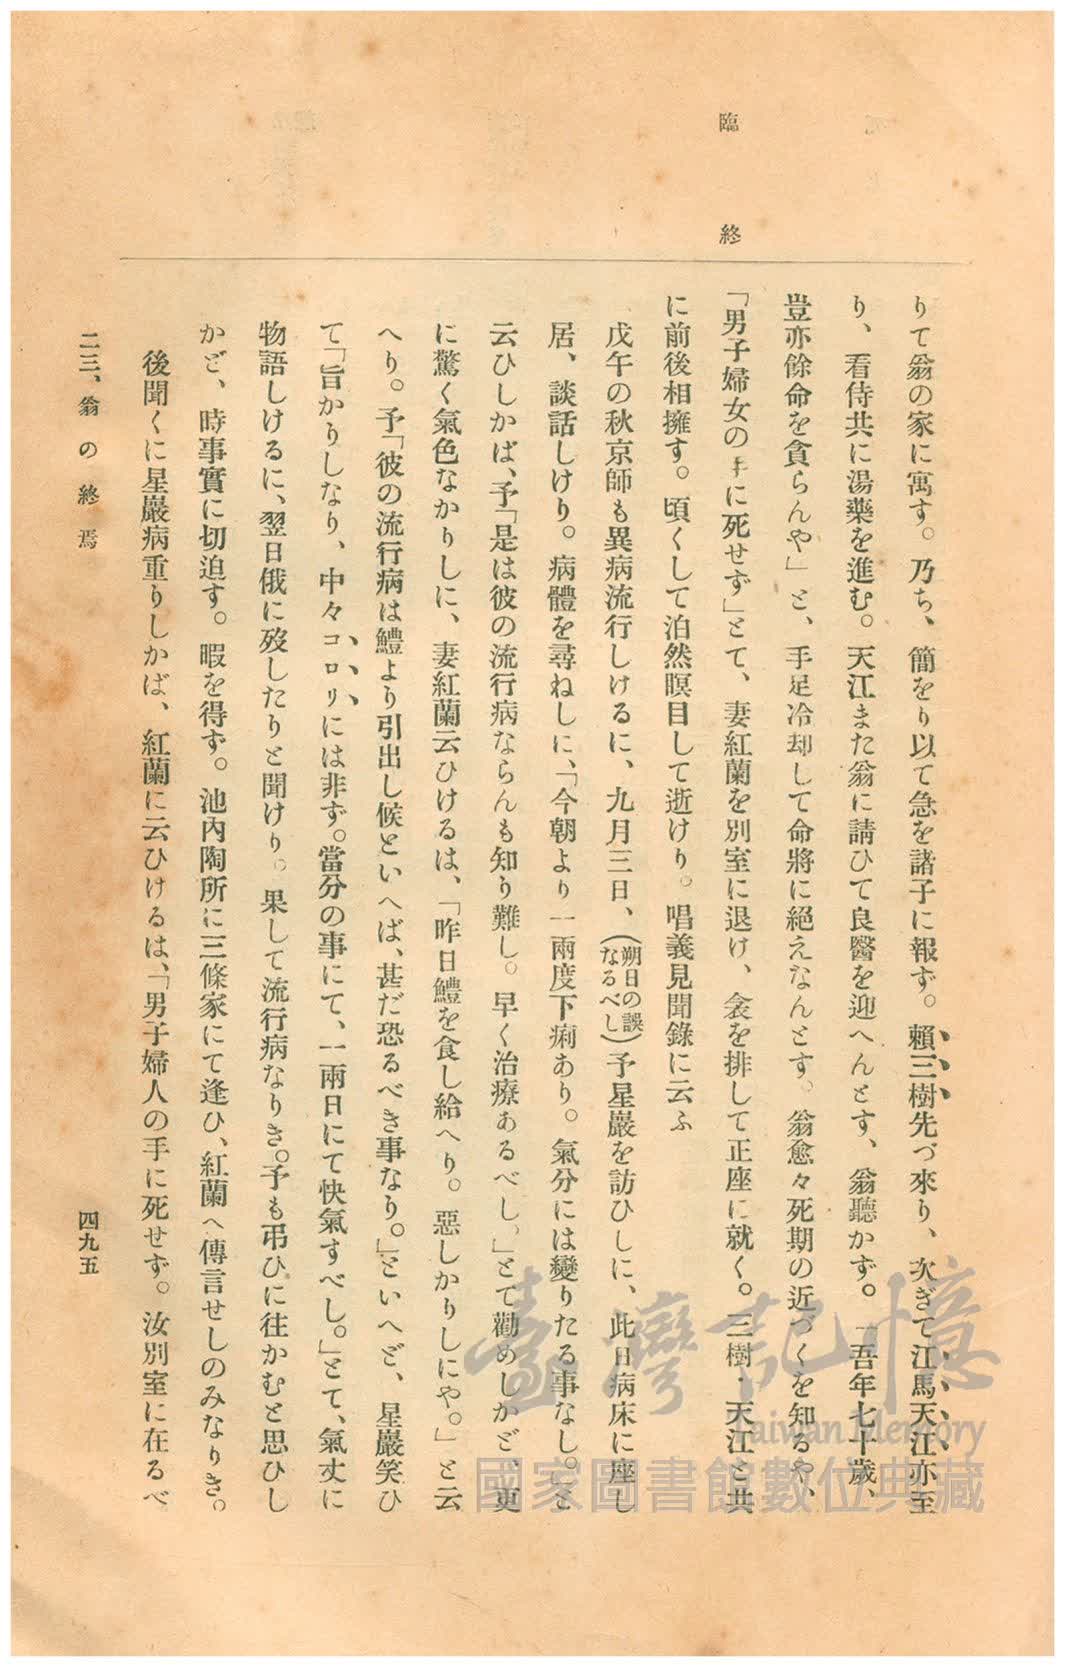 臨終
りて翁の家に寓す。乃ち、簡をり以て急を諸子に報ず。賴三樹先づ來り、次ぎて江馬天江亦至
り、看侍共に湯藥を進む。天江また翁に請ひて良醫を迎へんとす、翁聽かず。「吾年七十歲、
豈亦餘命を貪らんや」と、手足冷却して命將に絕えなんとす。翁愈々死期の近づくを知るや、
「男子婦女の手に死せず」とて、妻紅蘭を別室に退け、衾を排して正座に就く。三樹・天江と共
に前後相擁す。頃くして泊然瞑目して逝けり。唱義見聞錄に云ふ
戊午の秋京師も異病流行しけるに、九月三日、(朔日の誤なるべし)予星巖を訪ひしに、此日病床に座し
居、談話しけり。病體を尋ねしに、「今朝より一兩度下痢あり。氣分には變りたる事なし。」と
云ひしかば、予「是は彼の流行病ならんも知り難し。早く治療あるべし。」とて勸めしかど、更
に驚く氣色なかりしに、妻紅蘭云ひけるは、「昨日鱧を食し給へり。惡しかりしにや。」と云
へり。予「彼の流行病は鱧より引出し候といへば、甚だ恐るべき事なり。」といへど、星巖笑ひ
て「旨かりしなり、中々コロリには非ず。當分の事にて、一兩日にて快氣すべし。」とて、氣丈に
物語しけるに、翌日俄に歿したりと聞けり。果して流行病なりき。予も弔ひに往かむと思ひし
かど、時事實に切迫す。暇を得ず。池內陶所に三條家にて逢ひ、紅蘭へ傳言せしのみなりき。
後聞くに星巖病重りしかば、紅蘭に云ひけるは、「男子婦人の手に死せず。汝別室に在るべ
二三、翁の終焉
四九五
臺灣記憶
Taiwan Memory
國家圖書館數位典藏